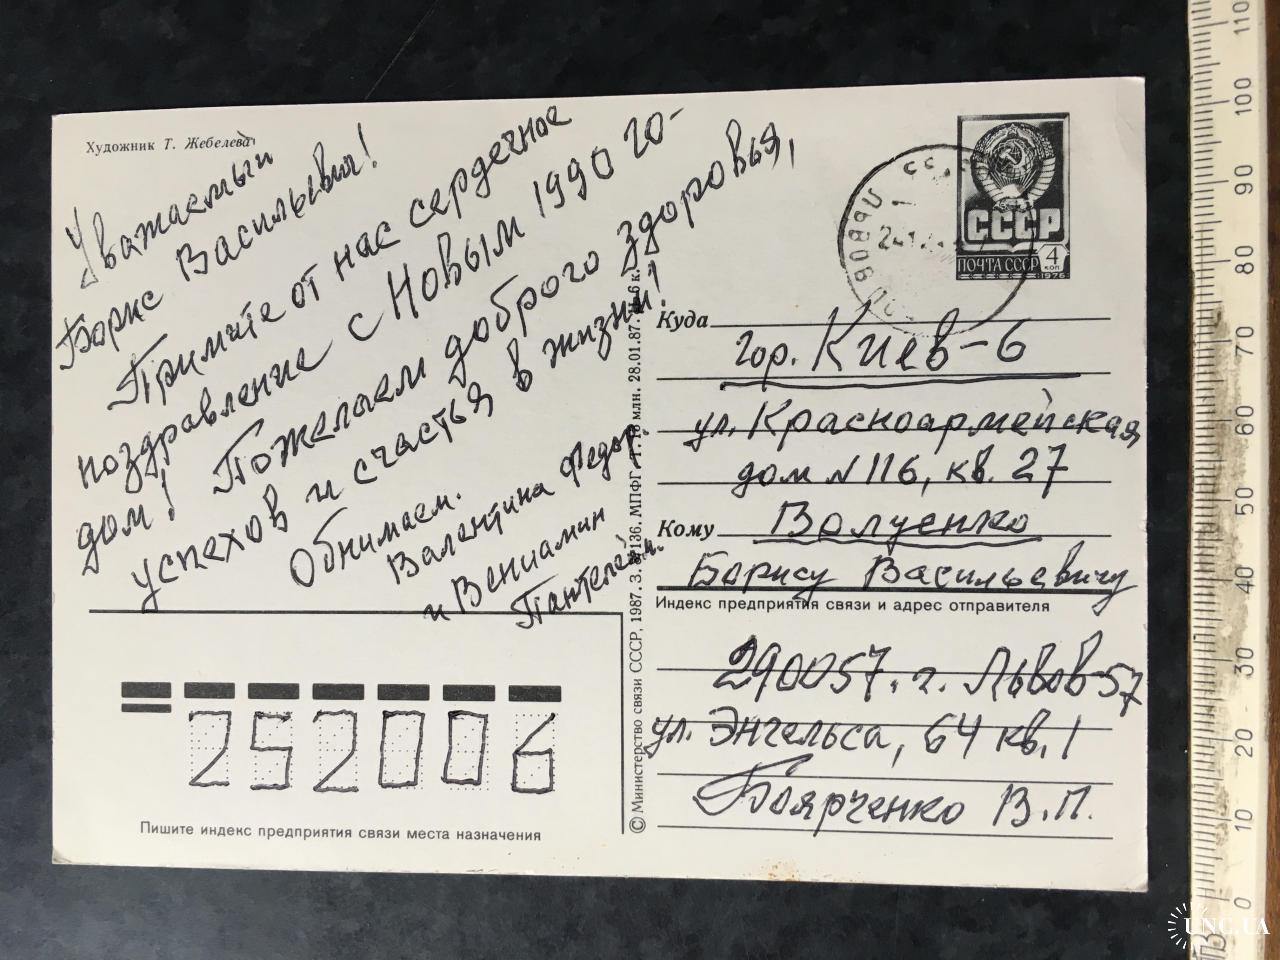 Художник Т. Жебелева
Уважаемый
Борис Васильевич!
Примите от нас сердечное
поздравление с Новым 1990 го-
дом! Пожелаем доброго здоровья,
успехов и счастья в жизни!
Обнимаем.
Валентина Федор.
и Вениамин
Пантелейм.
СССР
ПОЧТА СССР 4
коп
1976
Куда
гор. Киев-6
ул. Красноармейская,
дом N 116, кв. 27
Кому Волуенко
Борису Васильевичу
Индекс предприятия связи и адрес отправителя
290057. г. Львов-57
ул. Энгельса, 64 кв. 1
Боярченко В.П.
252006
Пишите индекс предприятия связи места назначения
© Министерство связи СССР, 1987. З. 136. МПФГ. Т. 18 млн. 28.01.87. 6 к.
110
100
90
80
70
60
50
40
30
20
10
0
UNC.UA